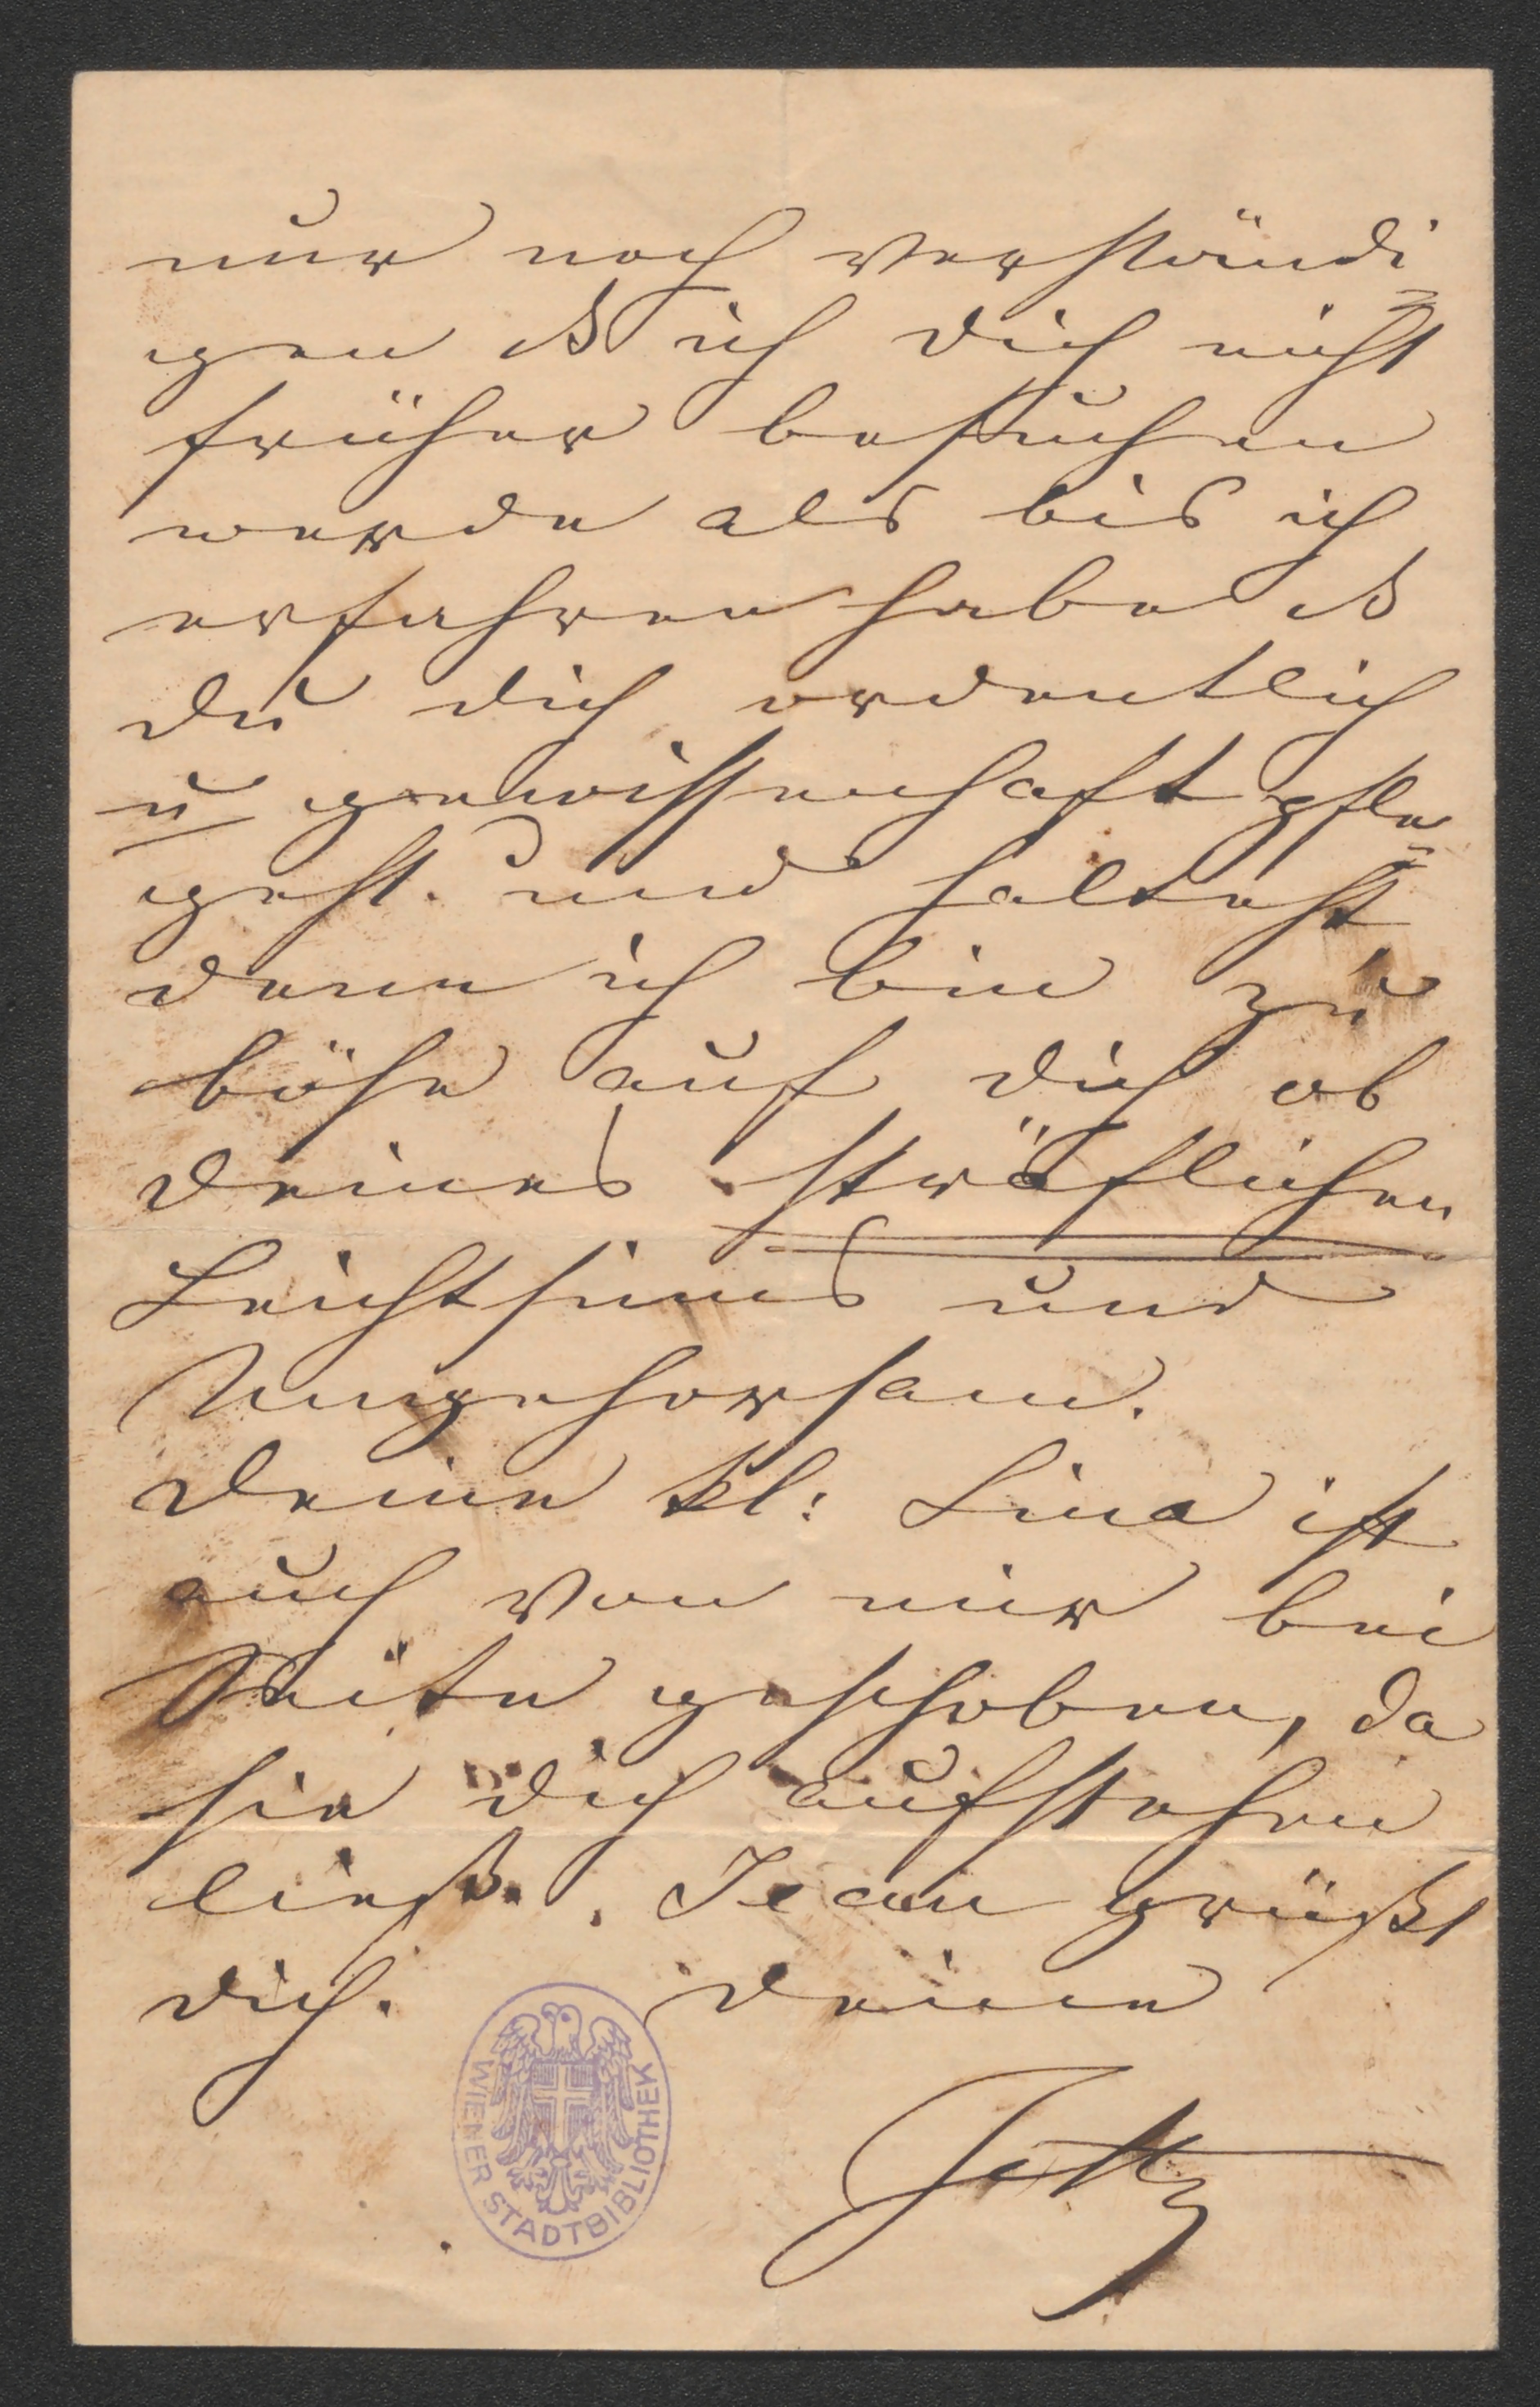 nur noch verständi
gen daß ich dich nicht
früher besuchen
werde als bis ich
erfahren habe daß
du dich ordentlich
u gewissenhaft pfle=
gest. und haltest
denn ich bin zu
böse auf dich ob
deines sträflichen
Leichtsinns und
Ungehorsam.
Deine kl: Lina ist
auch von mir bei
Seite geschoben, da
sie dich aufstehen
ließ. Jean grüßt
dich. Deine
Jetty
WIENER STADTBIBLIOTHEK